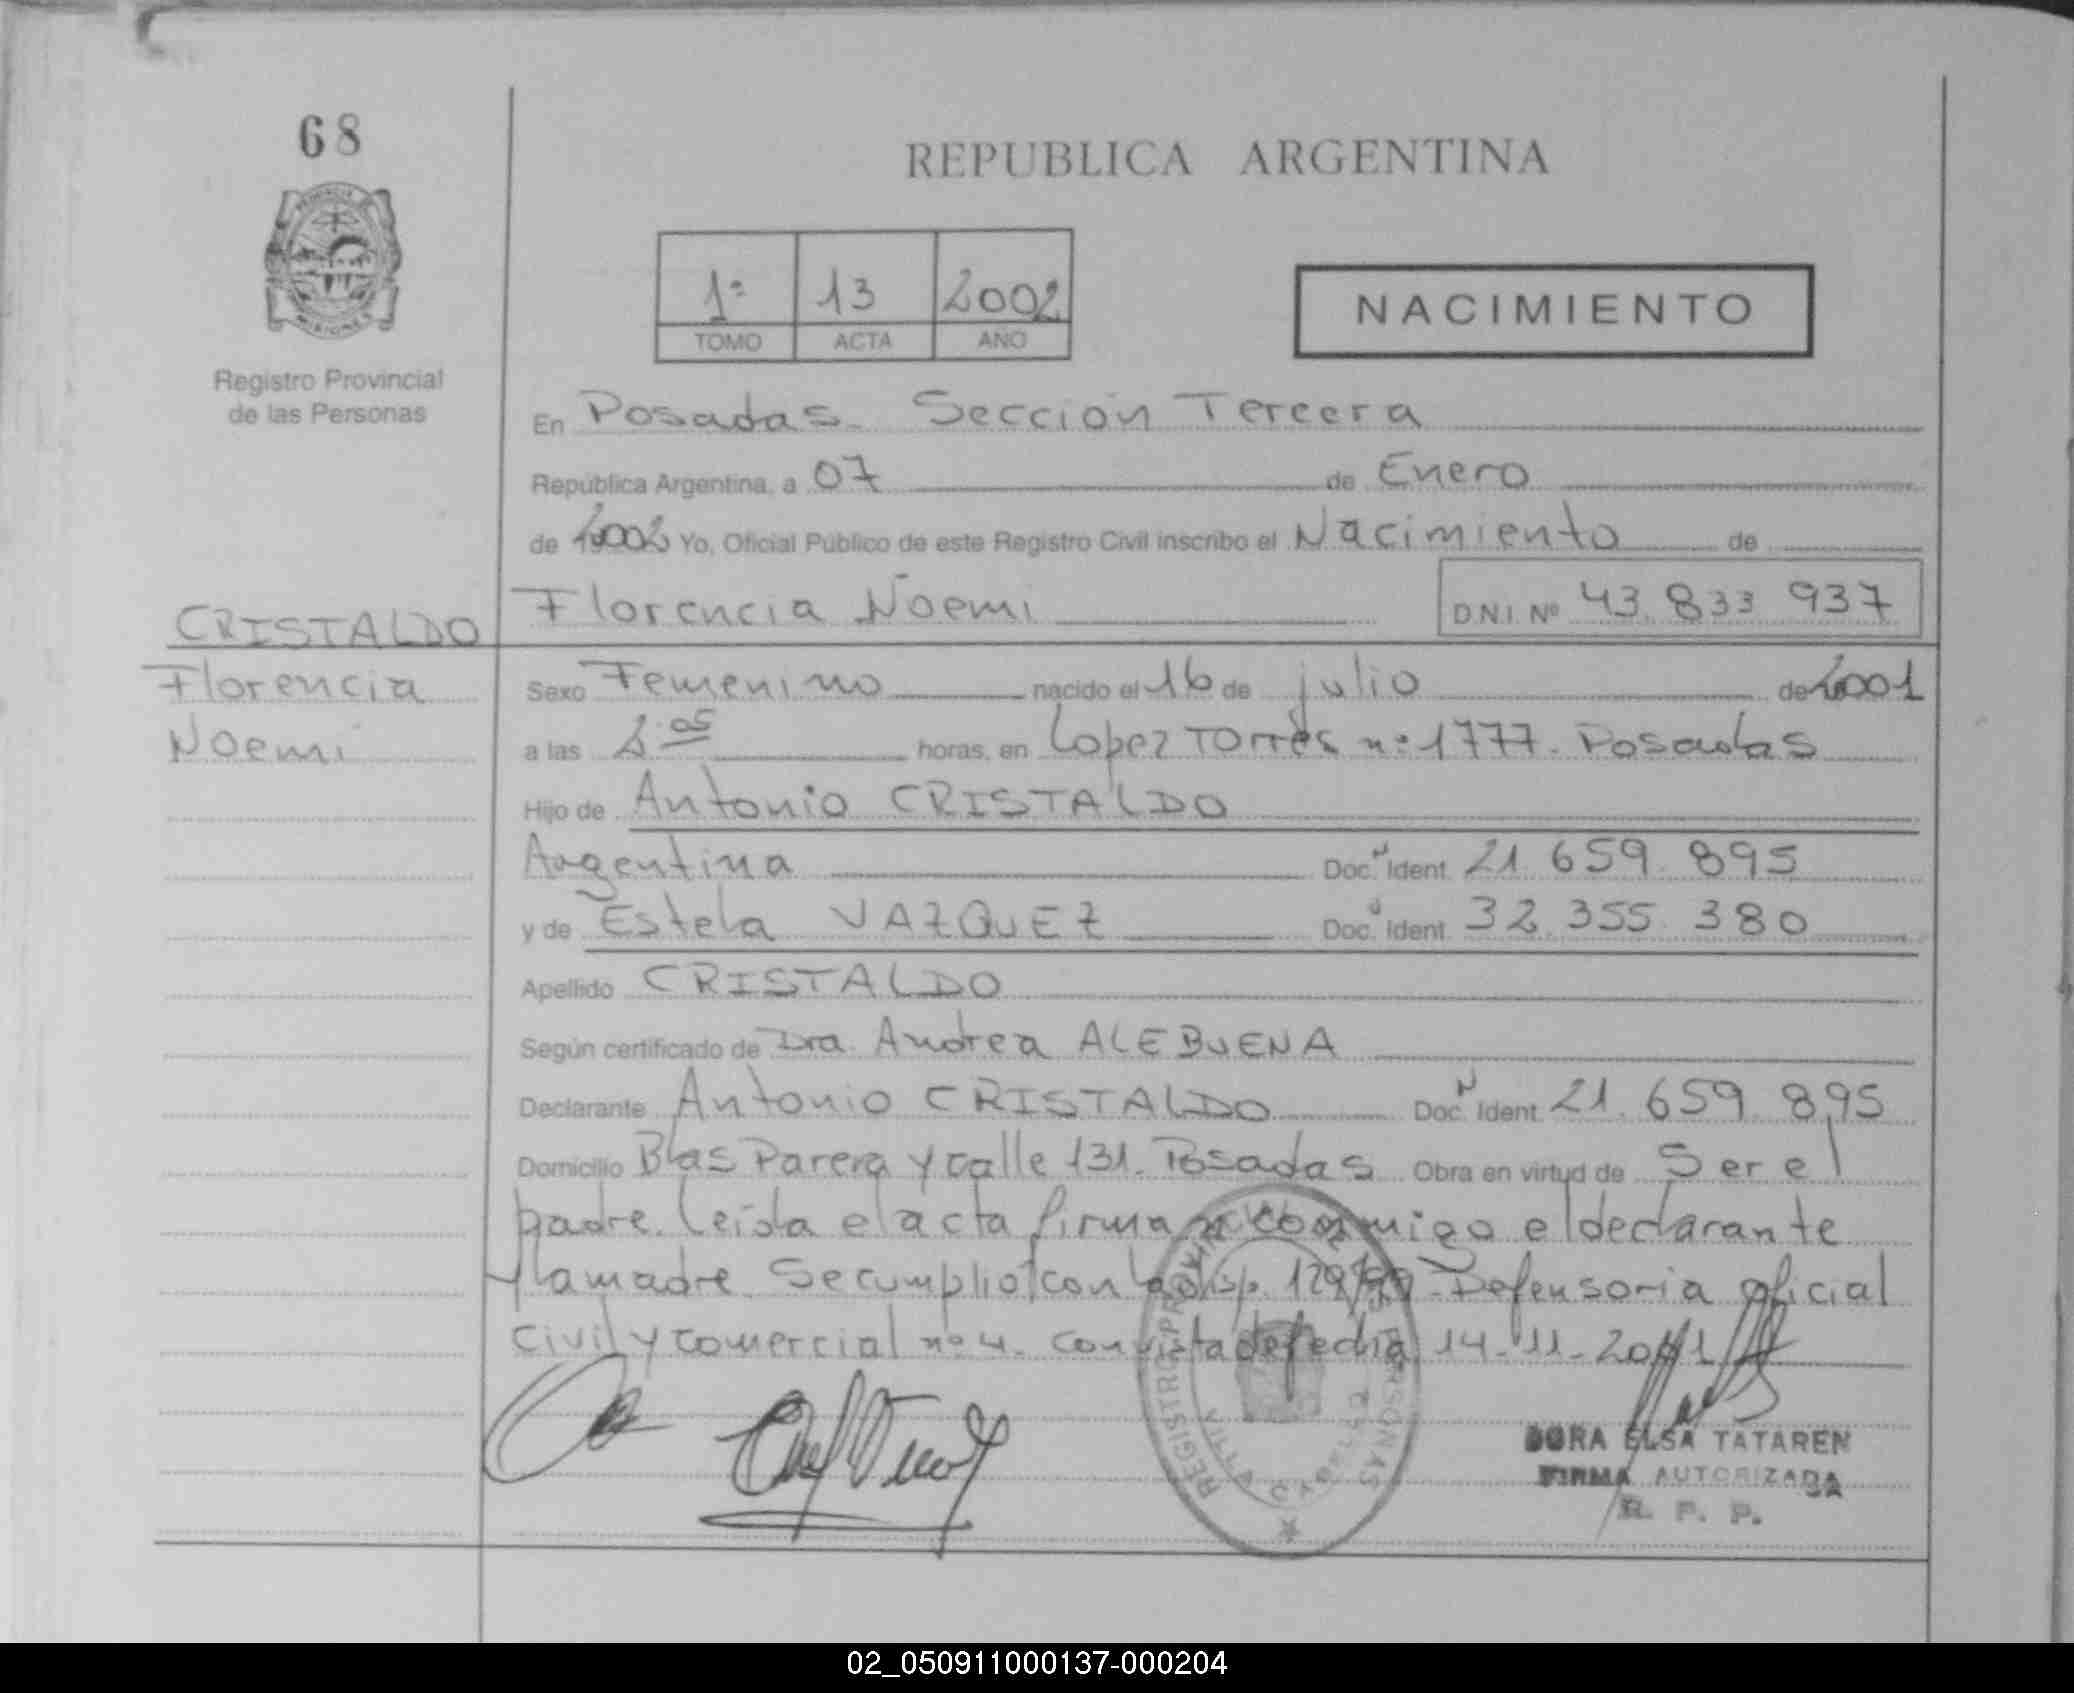 68
REPUBLICA ARGENTINA
PROVINCIA
MISIONES
1º 13 2002
TOMO ACTA AÑO
NACIMIENTO
Registro Provincial
de las Personas
En Posadas. Sección Tercera
República Argentina, a 07 de Enero
de 2002 Yo, Oficial Público de este Registro Civil inscribo el Nacimiento de
CRISTALDO
Florencia Noemi D.N.I. Nº 43.833.937
Florencia
Noemi
Sexo Femenino nacido el 16 de julio de 2001
a las 2.05 horas, en Lopez Torres nº 1777. Posadas
Hijo de Antonio CRISTALDO
Argentina Doc. N Ident. 21.659.895
y de Estela VAZQUEZ Doc. Ident. 32.355.380
Apellido CRISTALDO
Según certificado de Dra. Andrea ALEBUENA
Declarante Antonio CRISTALDO Doc. N Ident. 21.659.895
Domicilio Blas Parera y calle 131. Posadas Obra en virtud de Ser el
padre. Leída el acta firman conmigo el declarante
y la madre. Se cumplió con la disp. 129/99 - Defensoria oficial
Civil y comercial nº 4. con vista de fecha 14-11-2001
REGISTRO PERSONAS
VILLA CABELLO
DORA ELSA TATAREN
FIRMA AUTORIZADA
R. P. P.
02_050911000137-000204